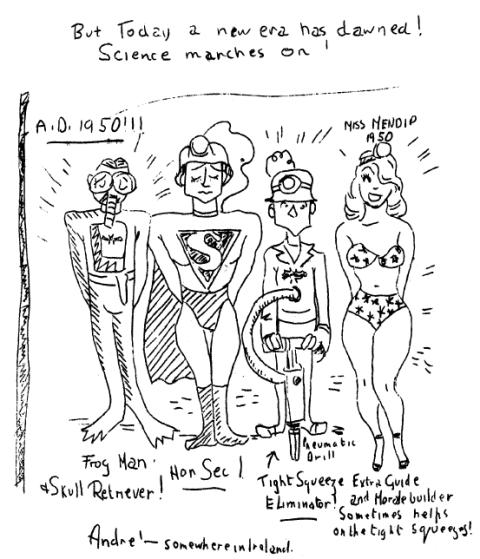 But Today a new era has dawned!
Science marches on!
A.D. 1950!!!
MISS MENDIP
1950
S
Frog Man.
& Skull Retriever!
Hon Sec!
Pneumatic
Drill
Tight Squeeze
Eliminator!
Extra Guide
and Morale builder
Sometimes helps
on the tight squeezes!
André! — somewhere in Ireland.